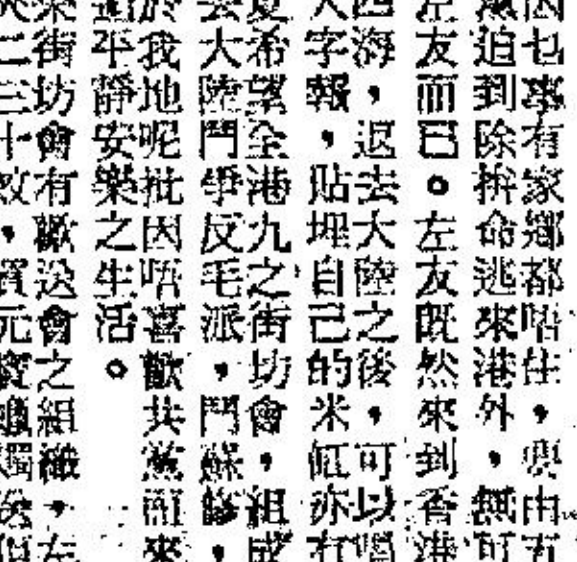 乜事有家鄉都唔住，
迫到除拚命逃來港外，無可
友而已。左友既然來到香港
四海，返去大陸之後，可以唱
大字報，貼埋自己的米缸亦冇
希望全港九之街坊會，組成
去大陸鬥爭反毛派，鬥蘇修，
於我地呢批因唔喜歡共黨而來
平靜安樂之生活。
街坊會有歡送會之組織，左
二三十文，寶元